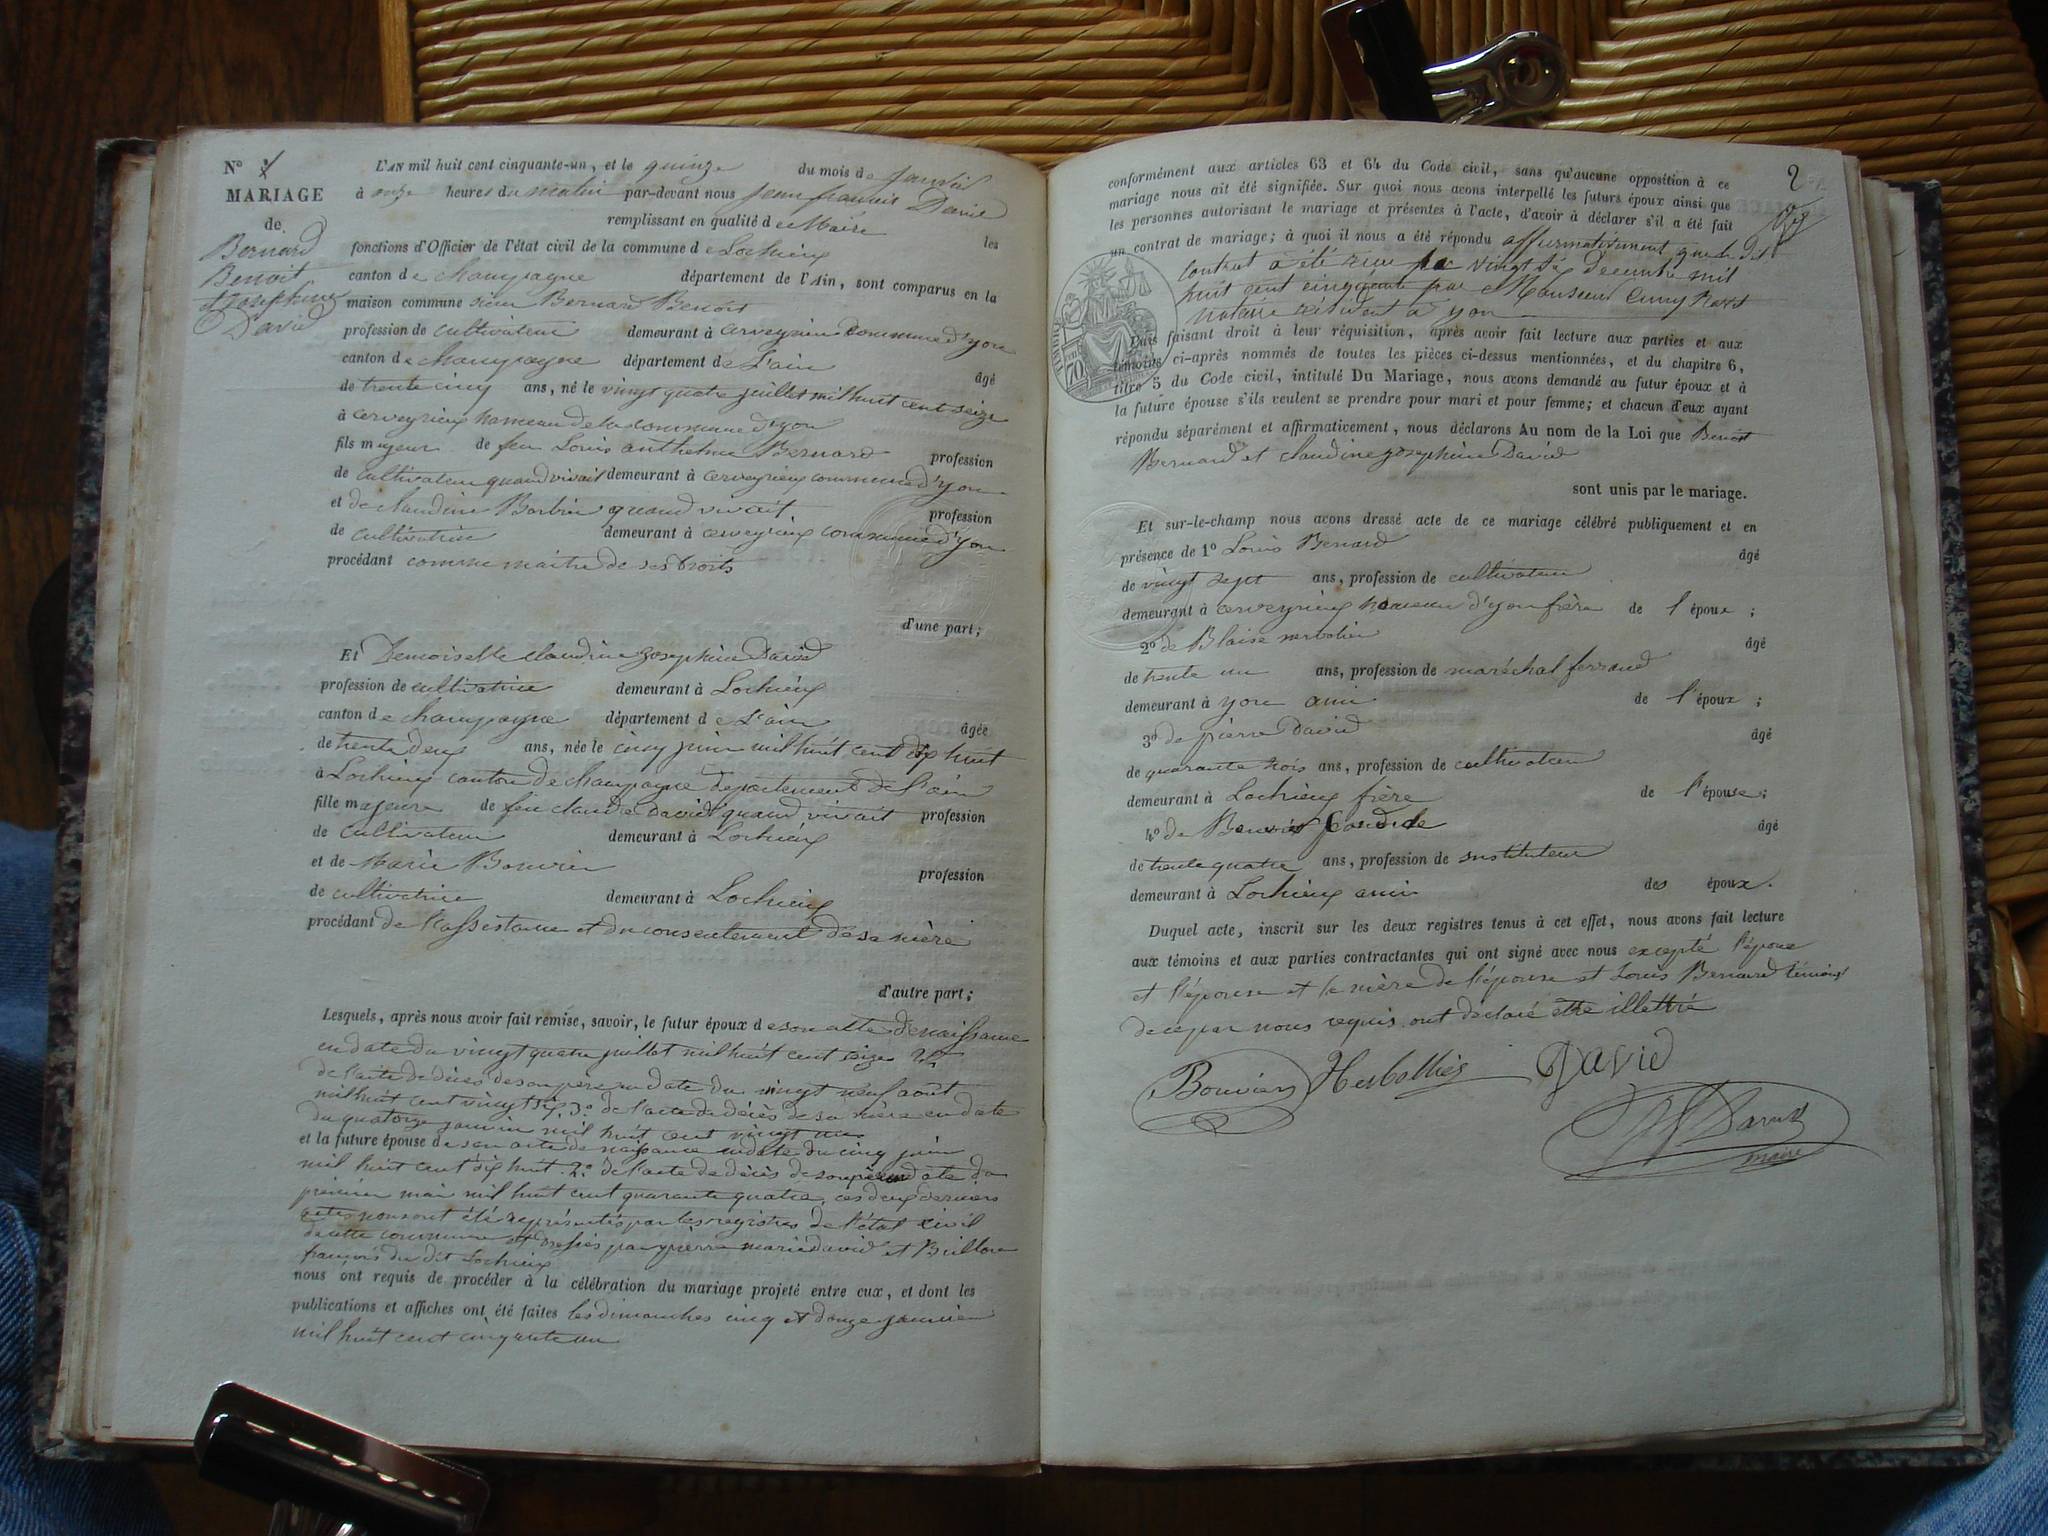 N° 1
MARIAGE
de
Bernard
Benoit
et Josephine
David
L'AN mil huit cent cinquante-un, et le quinze du mois de Janvier
à onze heures du matin par-devant nous Jean francois David
remplissant en qualité de Maire les
fonctions d'Officier de l'état civil de la commune de Lochieu
canton de champagne département de l'Ain, sont comparus en la
maison commune sieur Bernard Benoit
profession de cultivateur demeurant à cerveyrieu commune d'yon
canton de champagne département de L'ain âgé
de trente cinq ans, né le vingt quatre juillet mil huit cent seize
à cerveyrieu hameau de la commune d'yon
fils majeur de feu Louis anthelme Bernard profession
de cultivateur quand vivait demeurant à cerveyrieu commune d'yon
et de claudine Borbin quand vivait profession
de cultivatrice demeurant à cerveyrieu commune d'yon
procédant comme maitre de ses droits
d'une part;
Et Demoiselle claudine josephine David
profession de cultivatrice demeurant à Lochieu
canton de champagne département de L'ain âgée
de trente deux ans, née le cinq juin mil huit cent dix huit
à Lochieu canton de champagne departement de l'ain
fille majeure de feu claude David quand vivait profession
de cultivateur demeurant à Lochieu
et de Marie Bouvier profession
de cultivatrice demeurant à Lochieu
procédant de l'assistance et du consentement de sa mère
d'autre part;
Lesquels, après nous avoir fait remise, savoir, le futur époux de son acte de naissance
en date du vingt quatre juillet mil huit cent seize 2°
de l'acte de décès de son père en date du vingt neuf août
mil huit cent vingt six, 3° de l'acte de décès de sa mère en date
du quatorze janvier mil huit cent vingt un
et la future épouse de son acte de naissance en date du cinq juin
mil huit cent dix huit 2° de l'acte de décès de son père en date du
premier mai mil huit cent quarante quatre, ces deux derniers
actes nous ont été représentés par les registres de l'état civil
de cette commune et dressés par pierre marie david et Buillon
francois du dit Lochieu
nous ont requis de procéder à la célébration du mariage projeté entre eux, et dont les
publications et affiches ont été faites les dimanches cinq et douze janvier
mil huit cent cinquante un
2
conformément aux articles 63 et 64 du Code civil, sans qu'aucune opposition à ce
mariage nous ait été signifiée. Sur quoi nous avons interpellé les futurs époux ainsi que
les personnes autorisant le mariage et présentes à l'acte, d'avoir à déclarer s'il a été fait
un contrat de mariage; à quoi il nous a été répondu affirmativement que le dit
contrat a été reçu le vingt six decembre mil
huit cent cinquante par Monsieur Cuny
notaire résident a yon
Puis faisant droit à leur réquisition, après avoir fait lecture aux parties et aux
témoins ci-après nommés de toutes les pièces ci-dessus mentionnées, et du chapitre 6,
titre 5 du Code civil, intitulé Du Mariage, nous avons demandé au futur époux et à
la future épouse s'ils veulent se prendre pour mari et pour femme; et chacun d'eux ayant
répondu séparément et affirmativement, nous déclarons Au nom de la Loi que Benoit
Bernard et claudine josephine David
sont unis par le mariage.
Et sur-le-champ nous avons dressé acte de ce mariage célébré publiquement et en
présence de 1° Louis Bernard âgé
de vingt sept ans, profession de cultivateur
demeurant à cerveyrieu hameau d'yon frère de l'époux;
2° de Blaise herbolier âgé
de trente un ans, profession de maréchal ferrand
demeurant à yon ami de l'époux;
3° de pierre David âgé
de quarante trois ans, profession de cultivateur
demeurant à Lochieu frère de l'épouse;
4° de Bouvier âgé
de trente quatre ans, profession de instituteur
demeurant à Lochieu ami des époux.
Duquel acte, inscrit sur les deux registres tenus à cet effet, nous avons fait lecture
aux témoins et aux parties contractantes qui ont signé avec nous excepté l'époux
et l'épouse et la mère de l'épouse et Louis Bernard témoins
de ce par nous requis ont declaré etre illettré
Bouvier Herbollier David
David
maire